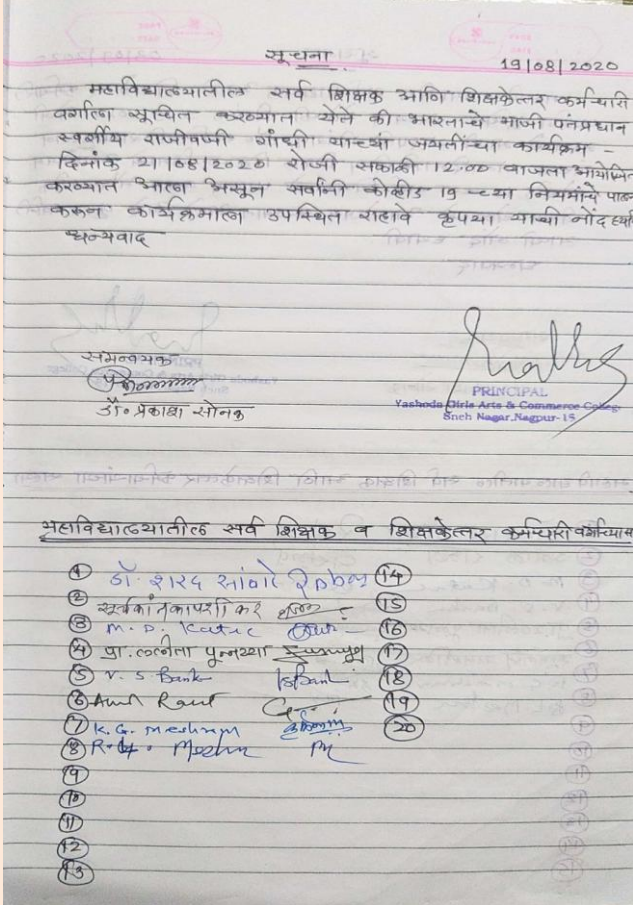 सूचना
19/08/2020
महाविद्यालयातील सर्व शिक्षक आणि शिक्षकेत्तर कर्मचारी
वर्गाला सूचित करण्यात येते की भारताचे माजी पंतप्रधान
स्वर्गीय राजीवजी गांधी याच्या जयंतीचा कार्यक्रम -
दिनांक 21/08/2020 रोजी सकाळी 12.00 वाजता आयोजित
करण्यात आला असून सर्वांनी कोव्हीड 19 च्या नियमांचे पालन
करून कार्यक्रमाला उपस्थित राहावे कृपया याची नोंद घ्यावी
धन्यवाद
समन्वयक
डॉ. प्रकाश सोनक
PRINCIPAL
Yashoda Girls Arts & Commerce College
Sneh Nagar, Nagpur-15
महाविद्यालयातील सर्व शिक्षक व शिक्षकेत्तर कर्मचारी
1 डॉ. शरद सांबारे 14
2 सूर्यकांत कापशीकर 15
3 M. D. Katre 16
4 प्रा. ललिता पुन्नया 17
5 V. S. Bank 18
6 Amil Raut 19
7 K. G. Meshram 20
8
9
10
11
12
13